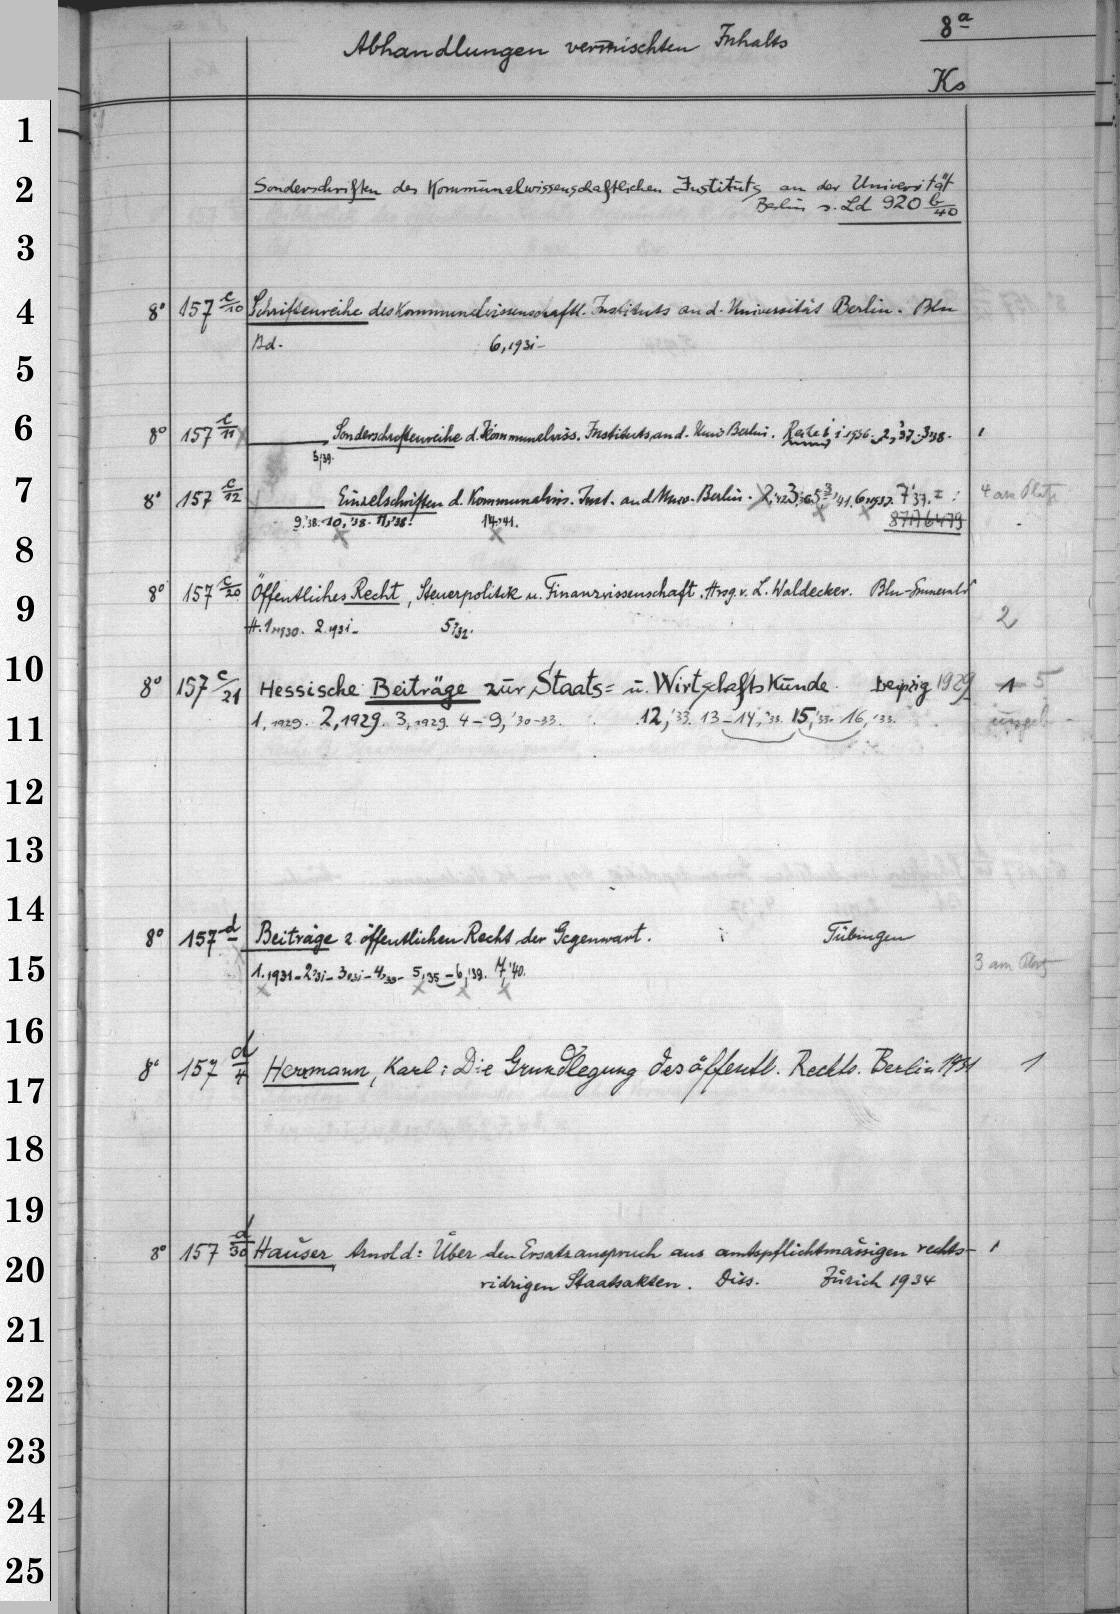 8ª
Abhandlungen vermischten Inhalts
Ks
1
2 Sonderschriften des Kommunalwissenschaftlichen Instituts an der Universität
Berlin s. Ld 920 b/40
3
4 8° 157 c/10 Schriftenreihe des Kommunalwissenschaftl. Instituts an d. Universität Berlin. Bln
5 Bd. 6, 1931-
6 8° 157 c/11 Sonderschriftenreihe d. Kommunalwiss. Instituts an d. Univ Berlin. Reihe 1 1936. 2,'37. 3'38. 1
5/39.
7 8° 157 c/12 Einzelschriften d. Kommunalwiss. Inst. an d. Univ. Berlin. 6,1937. 7'37. 4 am Platz
9,'38. 10,'38. 11,'38. 14,'41. 87A6479
8
9 8° 157 c/20 Öffentliches Recht, Steuerpolitik u. Finanzwissenschaft. Hrsg. v. L. Waldecker. Bln-
H. 1, 1930. 2. 1931- 5,'32. 2
10 8° 157 c/21 Hessische Beiträge zur Staats= u. Wirtschaftskunde. Leipzig 1929 1 5
11 1, 1929. 2, 1929. 3, 1929. 4-9, '30-33. 12,'33. 13-14,'33. 15,'33. 16,'33. ungeb
12
13
14 8° 157 d Beiträge z. öffentlichen Recht der Gegenwart. Tübingen
15 1. 1931-2'31-3'31-4,'33- 5,'35-6,'39. 7,'40. 3 am Platz
16
17 8° 157 d/4 Herrmann, Karl: Die Grundlegung des öffentl. Rechts. Berlin 1931 1
18
19
20 8° 157 d/30 Hauser, Arnold: Über den Ersatzanspruch aus amtspflichtmässigen rechts- 1
widrigen Staatsakten. Diss. Zürich 1934
21
22
23
24
25